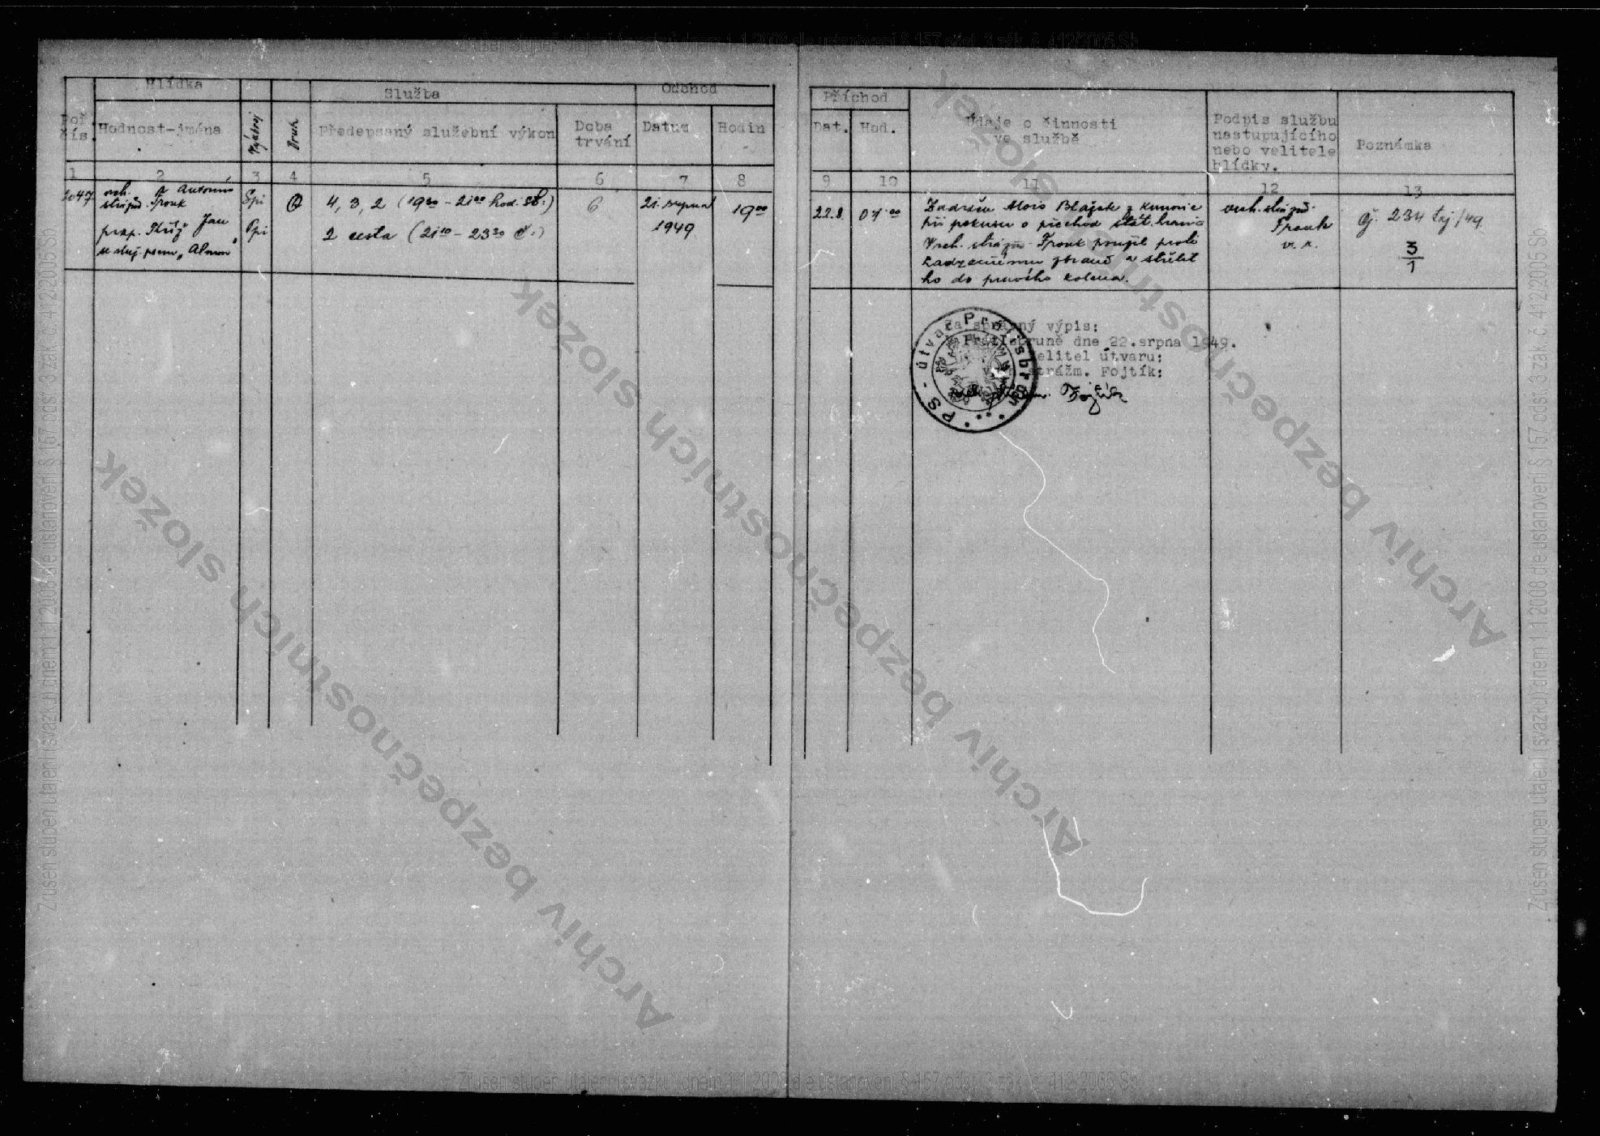 Hlídka
Služba
Odchod
Poř. čís.
Hodnost-jména
Výstroj
Druh
Předepsaný služební výkon
Doba trvání
Datum
Hodin
1 2 3 4 5 6 7 8
2047
vrch. Antonín
strážm. Frouk
prap. Kříž Jan
se služ. psem
Spi
Spi
4, 3, 2 (19⁰⁰ - 21⁰⁰ hod.
2 cesta (21¹⁰ - 23³⁰
6
21. srpna
1949
19⁰⁰
Příchod
Dat.
Hod.
Údaje o činnosti
ve službě
Podpis službu
nastupujícího
nebo velitele
hlídky.
Poznámka
9 10 11 12 13
22.8.
01⁰⁰
Zadržen Alois Blažek z Kunovic
při pokusu o přechod stát. hranic
Vrch. strážm. Frouk použil proti
zadrženému zbraně a střelil
ho do pravého kolena.
vrch. strážm.
Frouk
v. r.
čj. 234 taj/49
3
1
Za správný výpis:
dne 22.srpna 1949.
velitel útvaru:
strážm. Fojtík:
Fojtík
PS - útvar
Archiv bezpečnostních složek
Archiv bezpečnostních složek
Archiv bezpečnostních složek
Archiv bezpečnostních složek
Zrušen stupeň utajení svazku dnem 1.1.2008 dle ustanovení § 157 odst. 3 zák. č. 412/2005 Sb.
Zrušen stupeň utajení svazku dnem 1.1.2008 dle ustanovení § 157 odst. 3 zák. č. 412/2005 Sb.
Zrušen stupeň utajení svazku dnem 1.1.2008 dle ustanovení § 157 odst. 3 zák. č. 412/2005 Sb.
Zrušen stupeň utajení svazku dnem 1.1.2008 dle ustanovení § 157 odst. 3 zák. č. 412/2005 Sb.